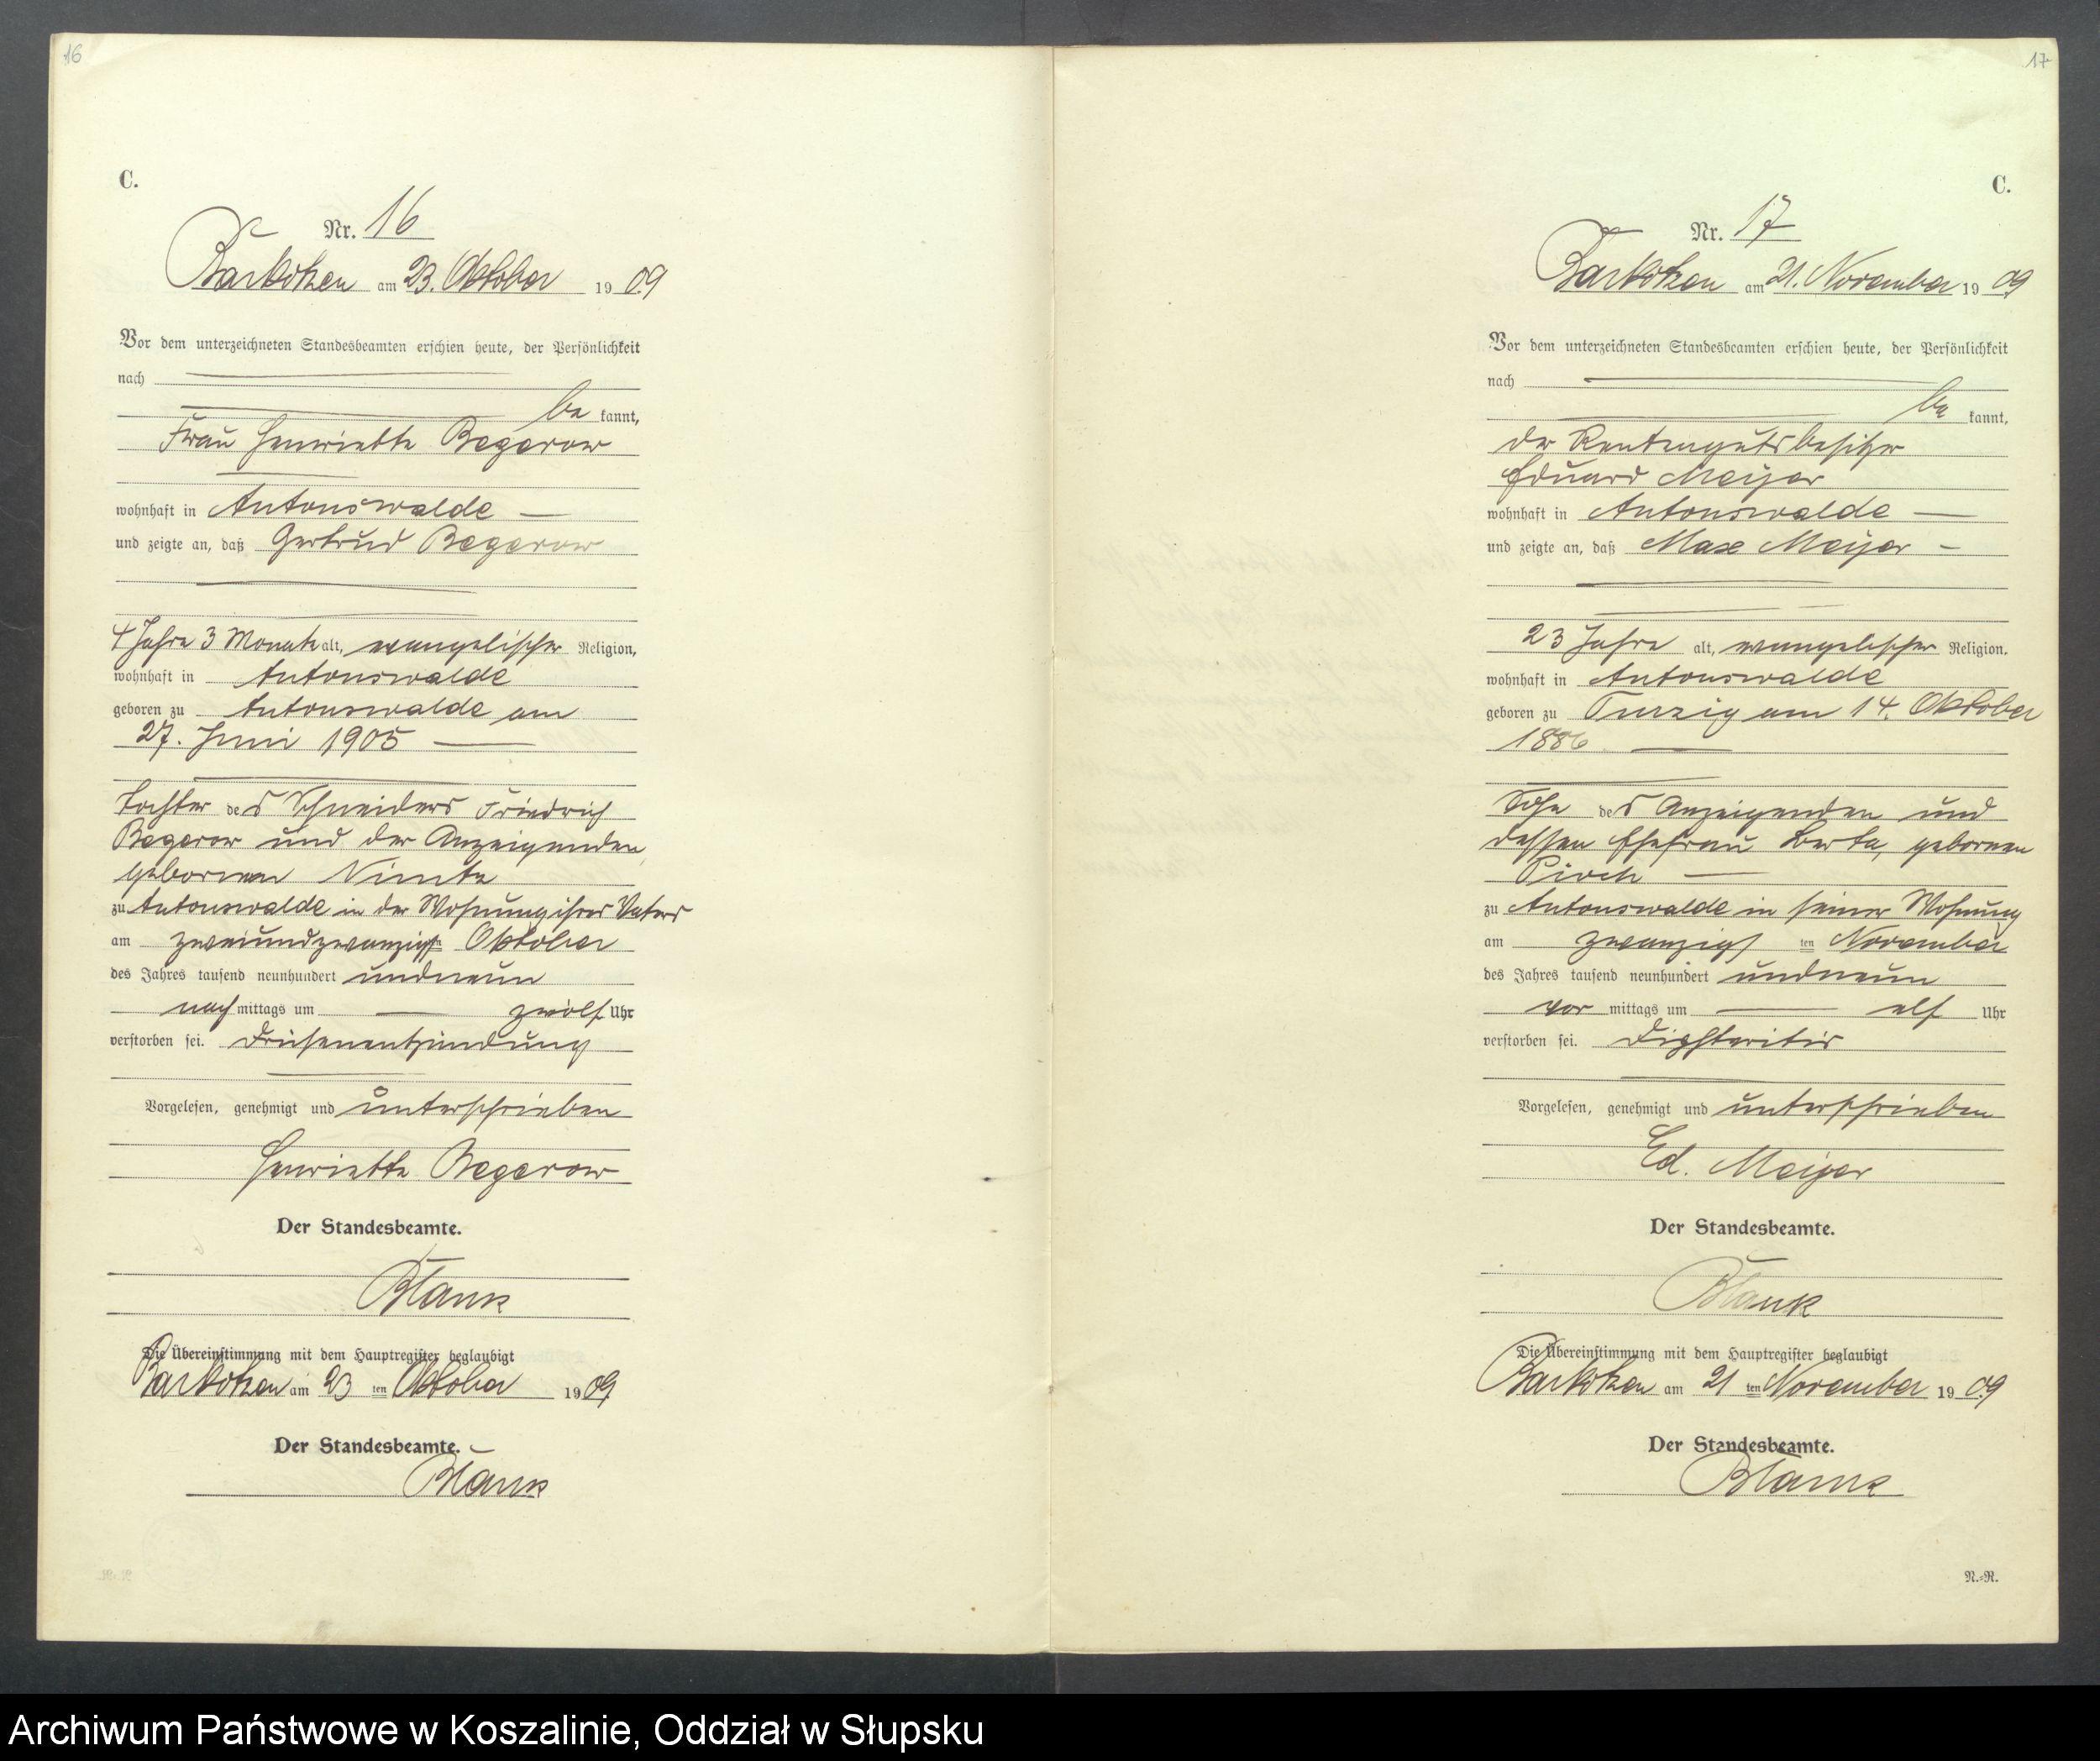 16
C.
Nr. 16
Barkotzen am 23. Oktober 1909
Vor dem unterzeichneten Standesbeamten erschien heute, der Persönlichkeit
nach
be kannt,
Frau Henriette Begerow
wohnhaft in Antonswalde
und zeigte an, daß Gertrud Begerow
4 Jahre 3 Monate alt, evangelischer Religion,
wohnhaft in Antonswalde
geboren zu Antonswalde am
27. Juni 1905
Tochter des Schneiders Friedrich
Begerow und der Anzeigenden,
geborenen
zu Antonswalde in der Wohnung ihres Vaters
am zweiundzwanzigsten Oktober
des Jahres tausend neunhundert undneun
nachmittags um zwölf Uhr
verstorben sei. Drüsenentzündung
Vorgelesen, genehmigt und unterschrieben
Henriette Begerow
Der Standesbeamte.
Blank
Die Übereinstimmung mit dem Hauptregister beglaubigt
Barkotzen am 23 ten Oktober 1909
Der Standesbeamte.
Blank
17
C.
Nr. 17
Barkotzen am 21. November 1909
Vor dem unterzeichneten Standesbeamten erschien heute, der Persönlichkeit
nach
be kannt,
der Rentengutsbesitzer
Eduard Meyer
wohnhaft in Antonswalde
und zeigte an, daß Max Meyer
23 Jahre alt, evangelischer Religion.
wohnhaft in Antonswalde
geboren zu Turzig am 14. Oktober
1886
Sohn des Anzeigenden und
dessen Ehefrau Berta, geborenen
Pirch
zu Antonswalde in seiner Wohnung
am zwanzigs ten November
des Jahres tausend neunhundert undneun
vor mittags um elf Uhr
verstorben sei. Diphteritis
Vorgelesen, genehmigt und unterschrieben
Ed. Meyer
Der Standesbeamte.
Blank
Die Übereinstimmung mit dem Hauptregister beglaubigt
Barkotzen am 21 ten November 1909
Der Standesbeamte.
Blank
N.=R.
Archiwum Państwowe w Koszalinie, Oddział w Słupsku